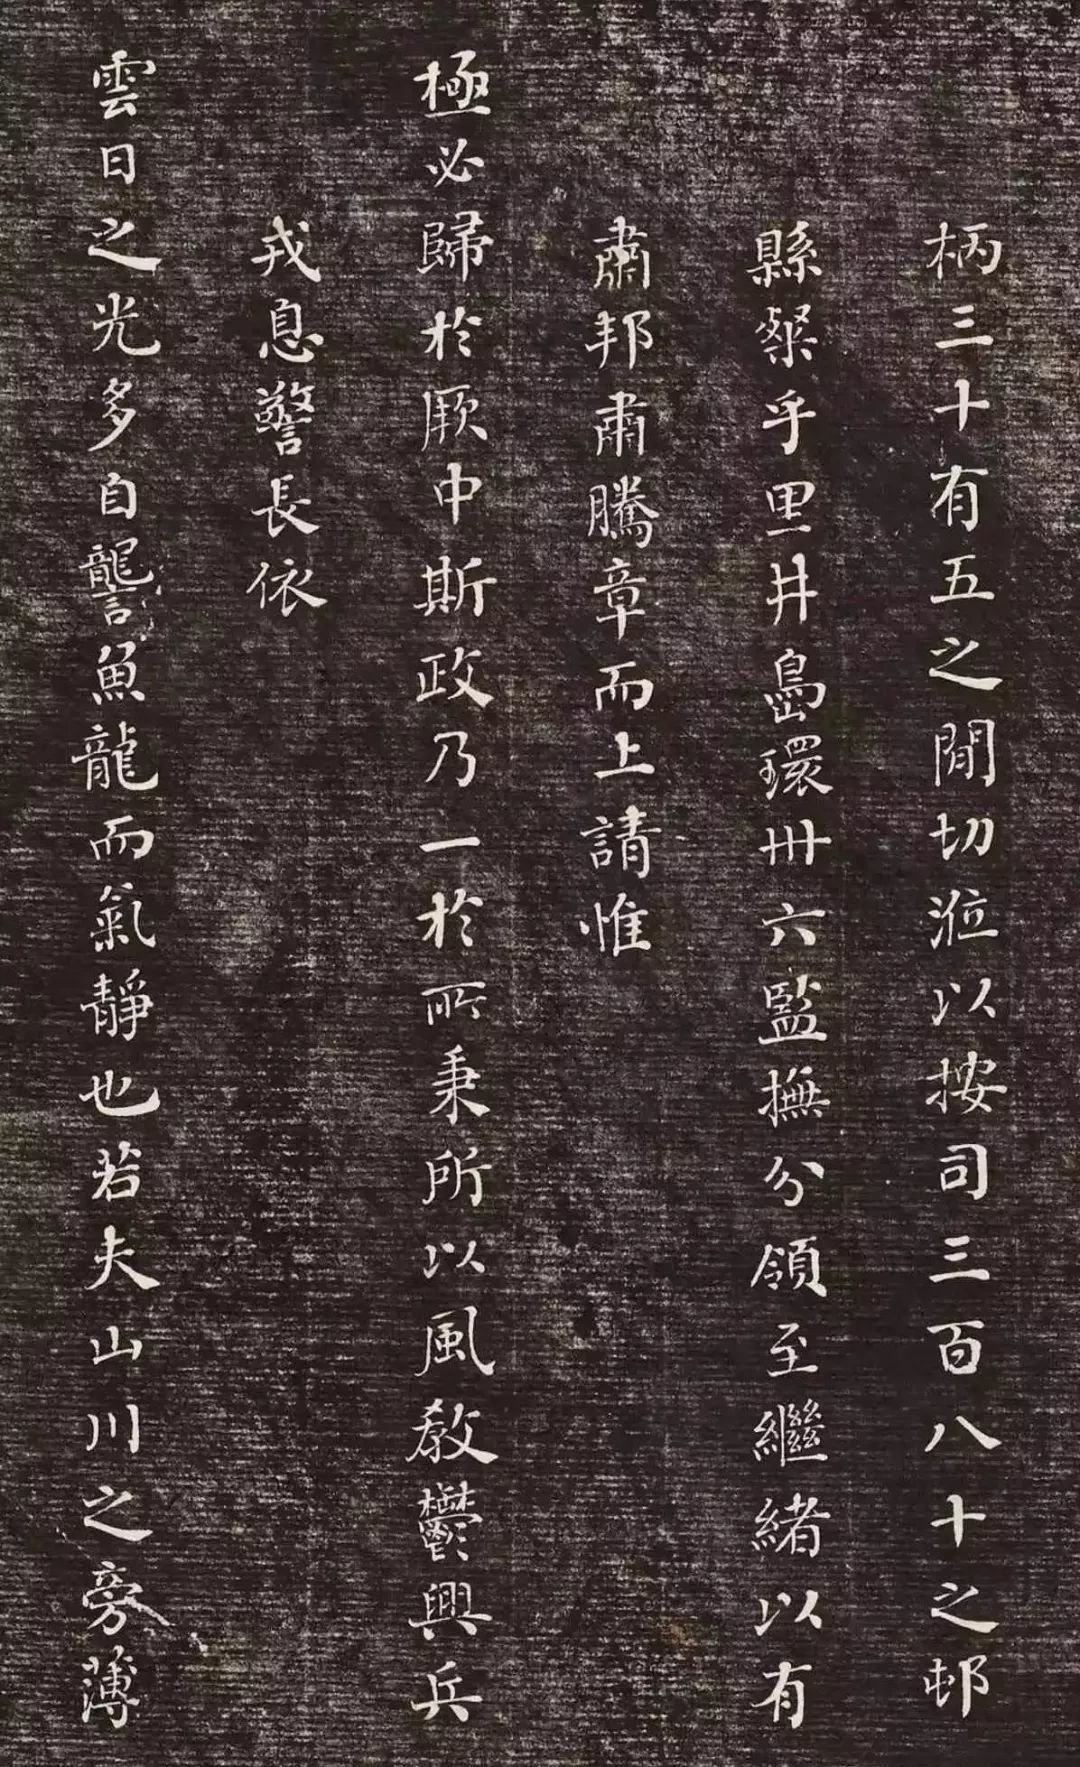 柄三十有五之閒切涖以按司三百八十之邨
縣粲乎里井島環卅六監撫分領至繼緒以有
肅邦肅騰章而上請惟
極必歸於厥中斯政乃一於所秉所以風教鬱興兵
戎息警長依
雲日之光多自讋魚龍而氣靜也若夫山川之旁薄